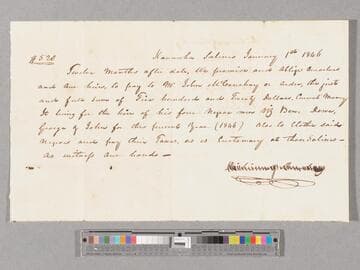 $520
Kanawha Salines January 1st 1846
Twelve Months after date, We promise and oblige ourselves
and our heirs, to pay to Mr John McConihay or order, the just
and full sum of Five hundred and Twenty Dollars, Current Money
It being for the hire of his four Negroe men Viz Ben, Moses,
George & John for the present Year (1846) also to Clothe said
Negroes and pay their Taxes, as is Customary at these Salines—
As witness our hands—